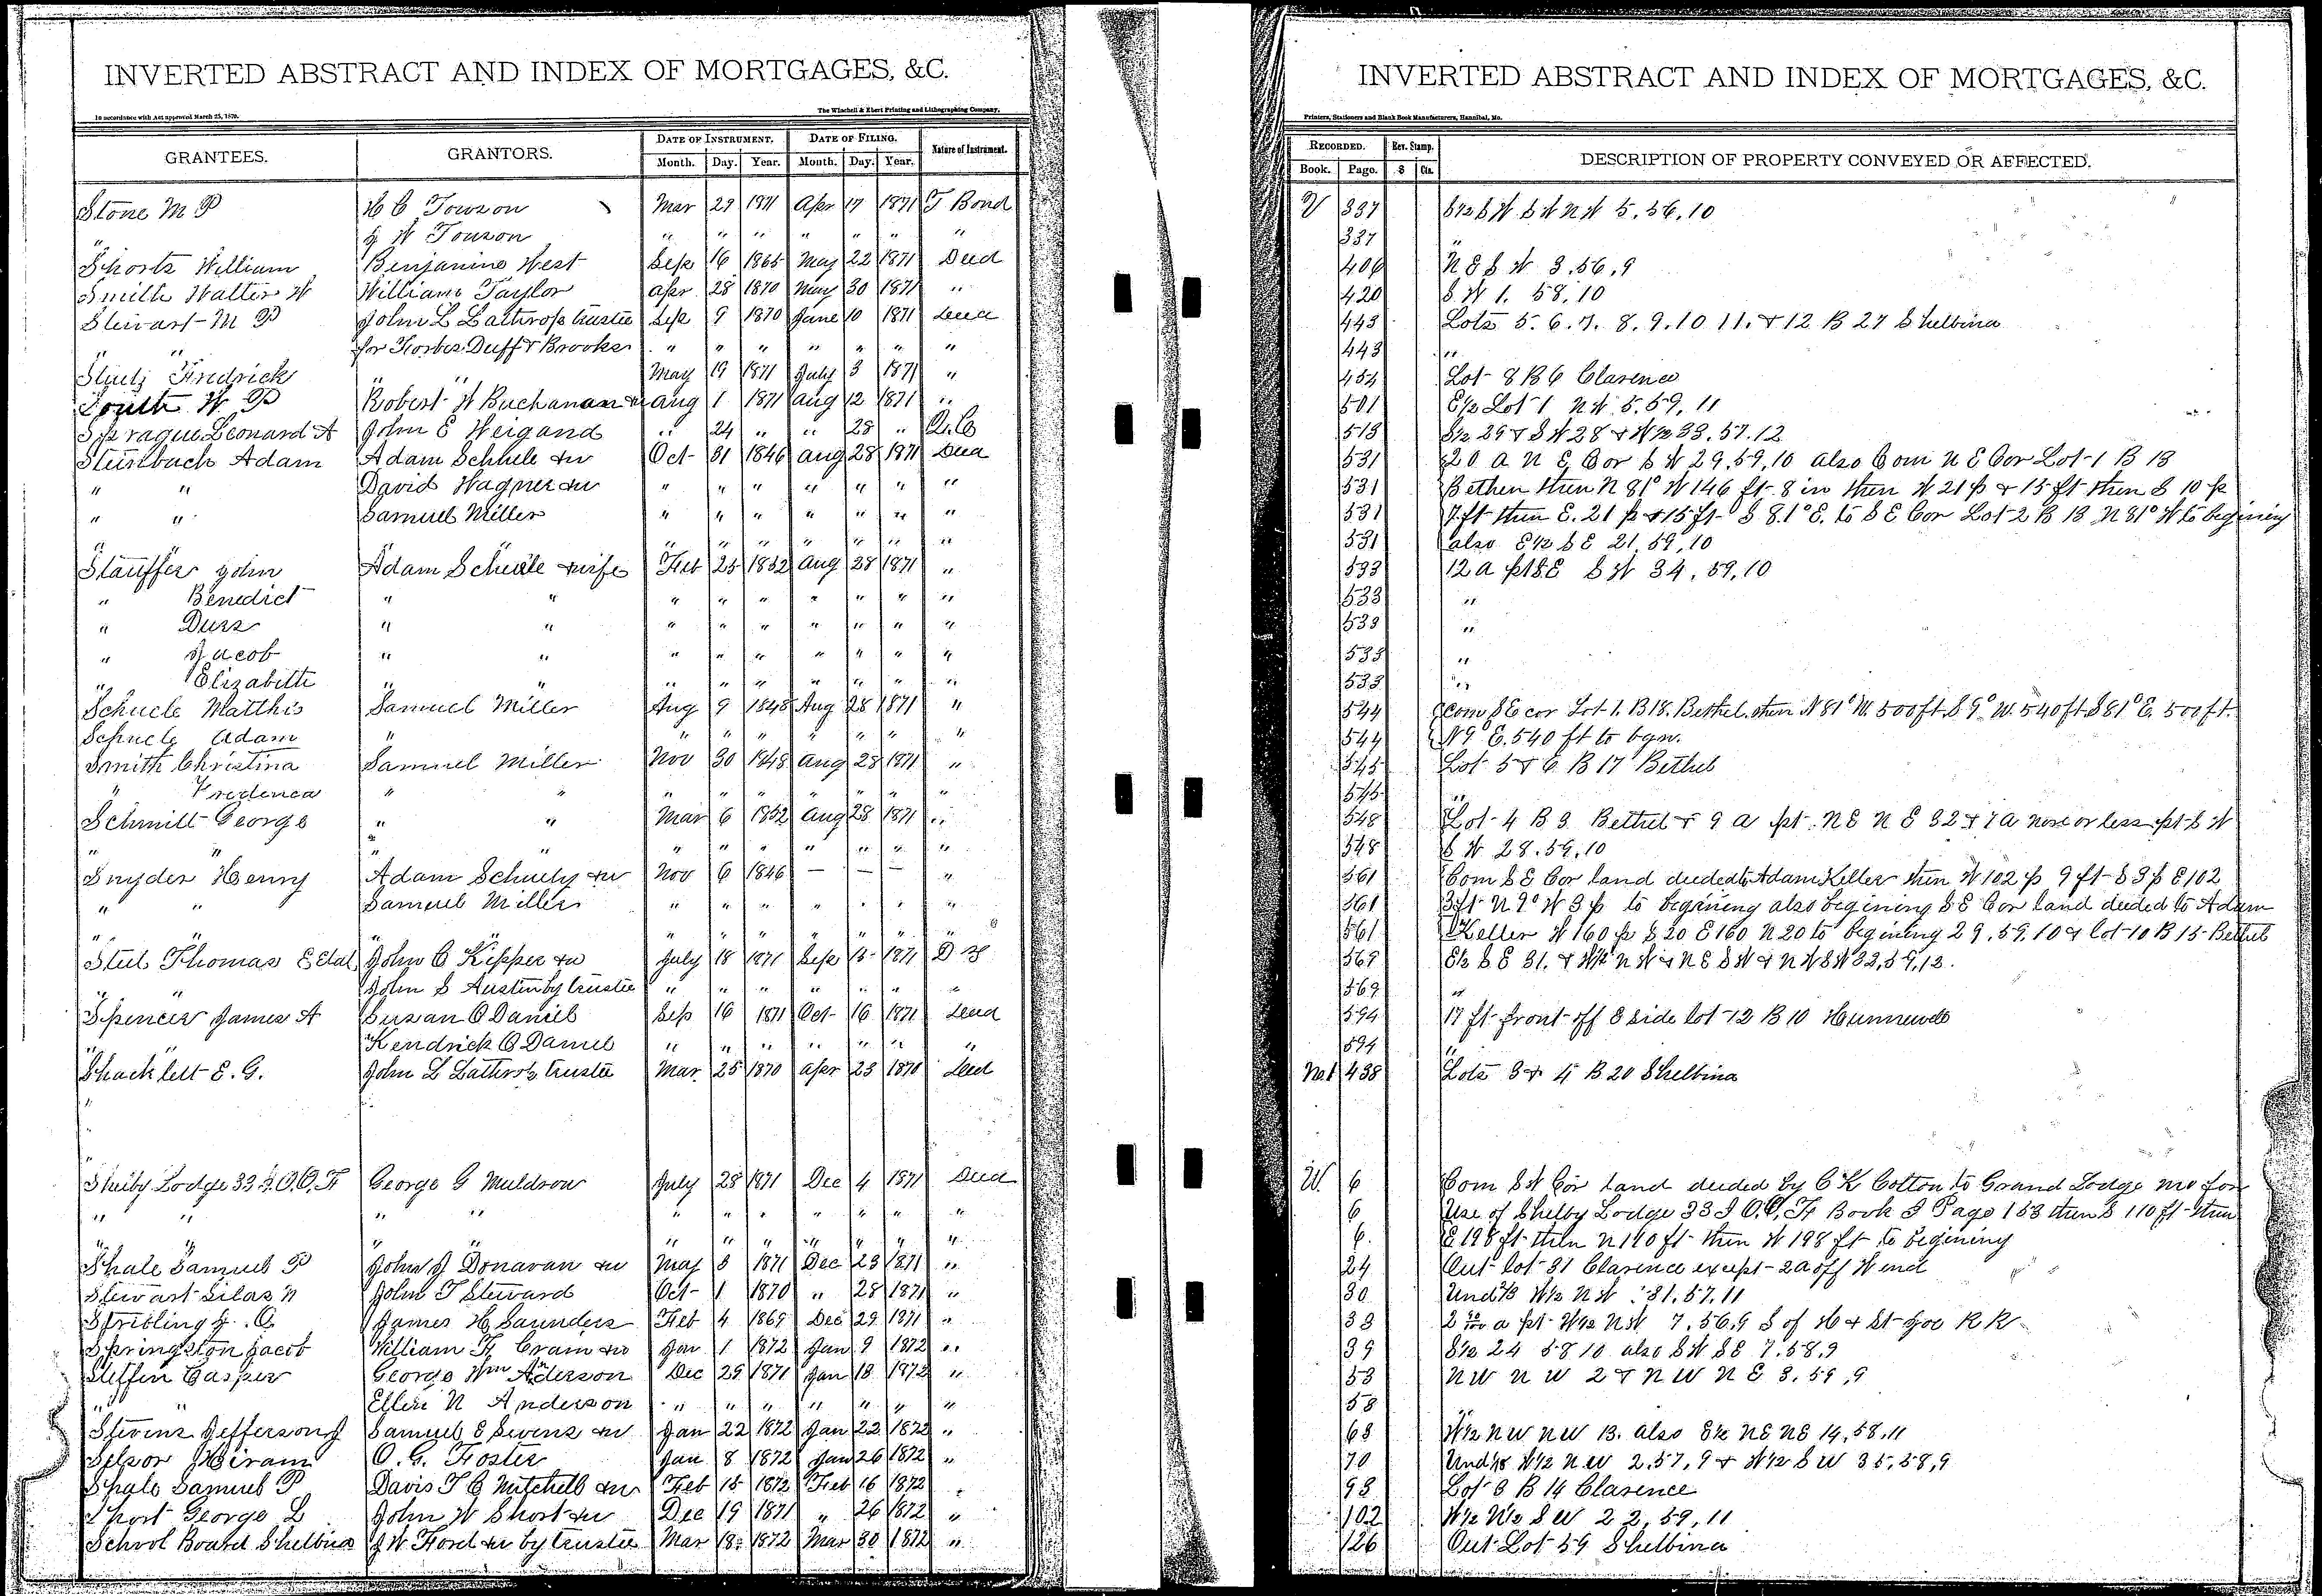 INVERTED ABSTRACT AND INDEX OF MORTGAGES, &C.
In accordance with Act approved March 25, 1870.
The Winchell & Ebert Printing and Lithographing Company,
GRANTEES. GRANTORS. DATE OF INSTRUMENT. DATE OF FILING. Nature of Instrument.
Month. Day. Year. Month. Day. Year.
Stone M P H C Towson Mar 29 1871 Apr 17 1871 T Bond
" J W Towson " " " " " " "
Shortz William Benjamine West Sep 16 1865 May 22 1871 Deed
Smith Walter W William Taylor Apr 28 1870 May 30 1871 "
Stewart M P John L Lathrop trustee Sep 9 1870 June 10 1871 Deed
" " for Forbes Duff & Brooks " " " " " " "
Fredrick " " May 19 1871 July 3 1871 "
South W P Robert W Buchanan & Aug 1 1871 Aug 12 1871 "
Sprague Leonard A John E Weigand " 24 " " 28 " Q.C
Steinbach Adam Adam Schuele & w Oct 31 1846 Aug 28 1871 Deed
" " David Wagner & w " " " " " " "
" " Samuel Miller " " " " " " "
" " " " " " "
Stauffer John Adam Schuele & wife Feb 25 1852 Aug 28 1871 "
" Benedict " " " " " " " " "
" Durs " " " " " " " " "
" Jacob " " " " " " " " "
" Elizabeth " " " " " " " " "
Schuele Matthis Samuel Miller Aug 9 1848 Aug 28 1871 "
Schuele Adam " " " " " " " "
Smith Christina Samuel Miller Nov 30 1848 Aug 28 1871 "
" Fredenca " " " " " " " " "
Schmitt George " " Mar 6 1852 Aug 28 1871 "
" " " " " " " " " "
Snyder Henry Adam Schuely & w Nov 6 1846 — — — "
" " Samuel Miller " " " " " " "
" " " " " " " " " "
Steel Thomas E Etal John C Kipper & w July 18 1871 Sep 15 1871 D T
" " John S Austin by trustee " " " " " " "
Spencer James A Susan O Daniel Sep 16 1871 Oct 16 1871 Deed
" Kendrick O Daniel " " " " " " "
Shacklett E. G. John L Lathrop trustee Mar 25 1870 Apr 23 1870 Deed
"
"
Shelby Lodge 33 I.O.O.F George G Muldrow July 28 1871 Dec 4 1871 Deed
" " " " " " " " " " "
" " " " " " " " " "
Shale Samuel P John J Donavan & w May 3 1871 Dec 23 1871 "
Stewart Silas N John T Steward Oct 1 1870 " 28 1871 "
Stribling J. C. James H Saunders Feb 4 1869 Dec 29 1871 "
Springston Jacob William F Cram & w Jan 1 1872 Jan 9 1872 "
Steffin Casper George Wm Aderson Dec 29 1871 Jan 18 1872 "
" " Ellen N Anderson " " " " " " "
Stevens Jefferson J Samuel E Sevens & w Jan 22 1872 Jan 22 1872 "
Selsor Hiram O. G. Foster Jan 8 1872 Jan 26 1872 "
Shale Samuel P Davis T C Mitchell & w Feb 15 1872 Feb 16 1872 "
Short George L John W Short & w Dec 19 1871 " 26 1872 "
School Board Shelbina J W Ford & w by trustee Mar 18 1872 Mar 30 1872 "
INVERTED ABSTRACT AND INDEX OF MORTGAGES, &C.
Printers, Stationers and Blank Book Manufacturers, Hannibal, Mo.
RECORDED. Rev. Stamp. DESCRIPTION OF PROPERTY CONVEYED OR AFFECTED.
Book. Page. $ Cts.
V 337 S½ S W S W N W 5.56.10
337 "
406 N E S W 3.56.9
420 S W 1. 58.10
443 Lots 5. 6. 7. 8. 9. 10 11. & 12 B 27 Shelbina
443 "
454 Lot 8 B 6 Clarence
501 E½ Lot 1 N W. 5.59.11
513 S½ 29 & S W 28 & W½ 33.57.12
531 20 a N E Cor S W 29.59.10 also Com N E Cor Lot 1 B 18
531 Bethen then N 81° W 146 ft 8 in then W 21 p & 15 ft then S 10 p
531 7 ft then E. 21 p & 15 ft S 81° E. to S E Cor Lot 2 B 18 N 81° W to begining
531 also E½ S E 21.59.10
533 12 a pt S E S W 34.59.10
533 "
533 "
533 "
533 "
544 Com S E cor Lot 1. B 18. Bethel. then N 81° W. 500 ft. S 9° W. 540 ft S 81° E. 500 ft.
544 N 9° E. 540 ft to bgn.
545 Lot 5 & 6 B 17 Bethel
545 "
548 Lot 4 B 3 Bethel & 9 a pt N E N E 32 & 7 a more or less pt S W
548 S W 28.59.10
561 Com S E Cor land deeded to Adam Keller then W 102 p 9 ft S 3 p E 102
561 3 ft N 9° W 3 p to begining also begining S E Cor land deeded to Adam
561 Keller W 160 p S 20 E 160 N 20 to begining 29.59.10 & lot 10 B 15 Bethel
569 E½ S E 31. & W½ N W & N E S W & N W S W 32.59.12.
569 "
594 17 ft front off E side lot 12 B 10 Hunnewell
594 "
No.1 438 Lots 3 & 4 B 20 Shelbina
W. 6 Com S W Cor land deeded by C K Cotton to Grand Lodge Mo for
6 Use of Shelby Lodge 33 I O.O. F Book I Page 153 then S 110 ft then
6. E 198 ft then N 110 ft then W 198 ft to begining
24 Out lot 31 Clarence except 2 a off W end
30 Und ⅓ W½ N W 31.57.11
33 a pt W½ N W 7.56.9 S of H & St Joe R R
39 S½ 24 58 10 also S W S E 7.58.9
53 N W N W 2 & N W N E 3.59.9
53
68 W½ N W N W 13. also E½ N E N E 14.58.11
70 W½ N W 2.57.9 & W½ S W 35.58.9
93 Lot 3 B 14 Clarence
102 W½ W½ S W 22.59.11
126 Out Lot 59 Shelbina